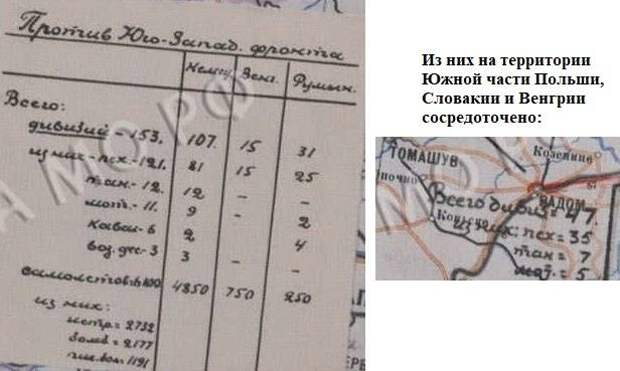 Против Юго-Запад. фронта
Немец. Венг. Румын.
Всего:
дивизий - 153. 107. 15 31
из них - пех - 121. 81 15 25
тан. - 12. 12 - -
мот. - 11. 9 - 2
кавал - 6 2 - 4
воз. дес - 3 3 - -
самолетов 4850 750 250
из них:
истр = 2732
бомб = 2177
1191
АМО РФ
Из них на территории
Южной части Польши,
Словакии и Венгрии
сосредоточено:
ТОМАШУВ Козенице
почно
РАДОМ
Всего дивиз = 47.
из них: пех = 35
тан = 7
мот. = 5